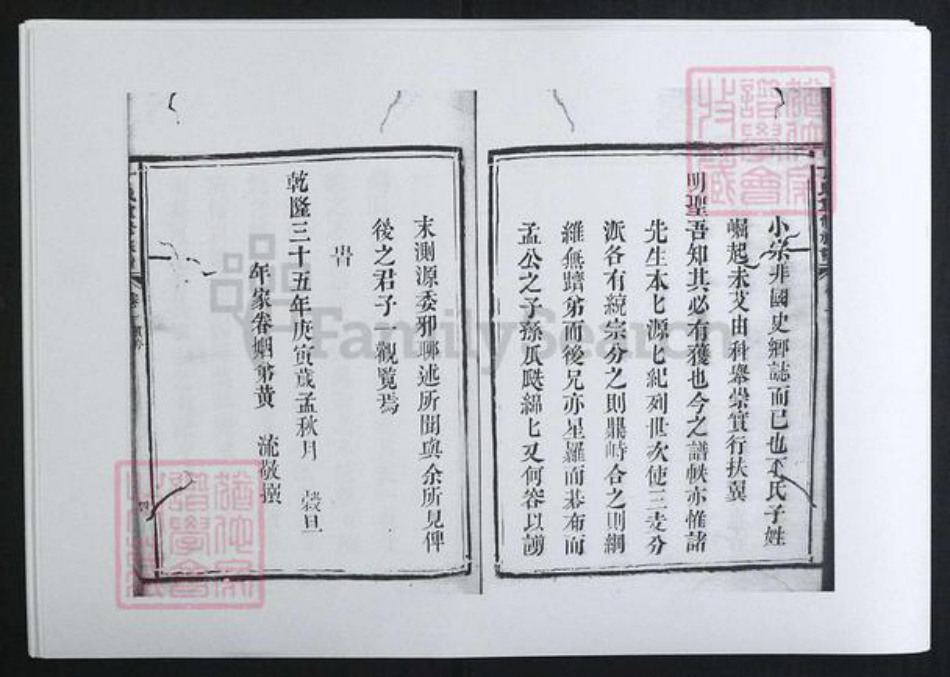 小宗非國史鄉誌而已也丁氏子姓
崛起未艾由科舉崇實行扶翼
明聖吾知其必有獲也今之譜帙亦惟諸
先生本匕源匕紀列世次使三支分
派各有統宗分之則鼎峙合之則綱
維無躋弟而後兄亦星羅而碁布而
孟公之子孫瓜瓞綿匕又何容以謭
末測源委邪聊述所聞與余所見俾
後之君子一觀覽焉
旹
乾隆三十五年庚寅歲孟秋月 穀旦
年家眷姻弟黃 流敬撰
FamilySearch